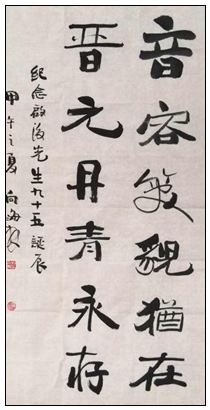 音容笑貌猶在
晋元丹青永存
紀念啟後先生九十五誕辰
甲午之夏 向海